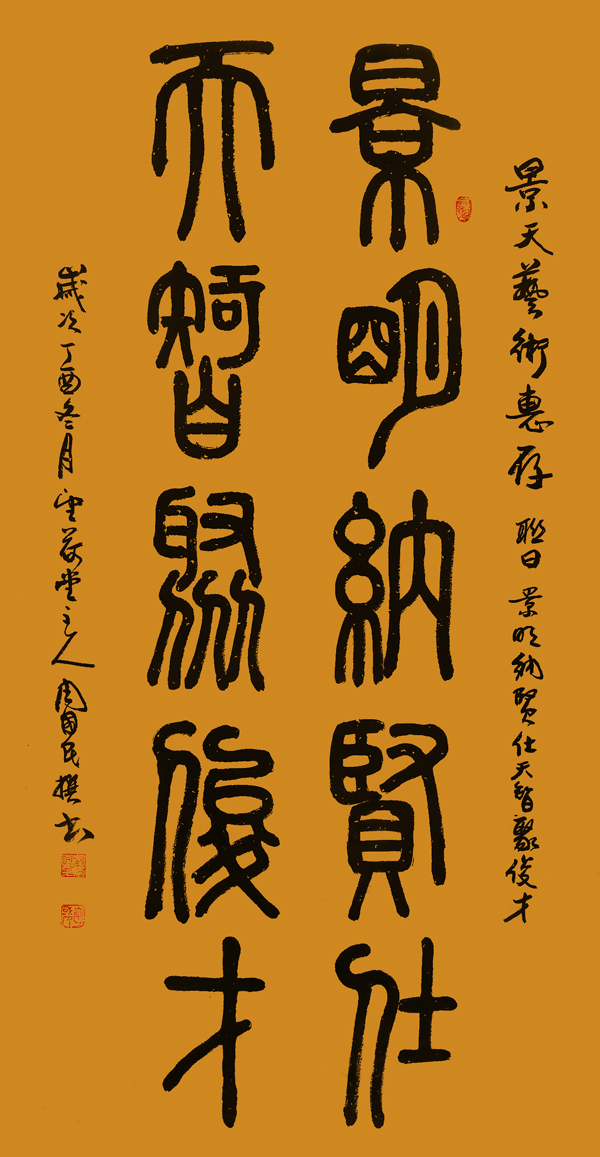 景天藝術惠存 聯曰 景明納賢仕天智聚俊才
景明納賢仕
天智聚俊才
歲次丁酉冬月荷堂主人周國民撰書